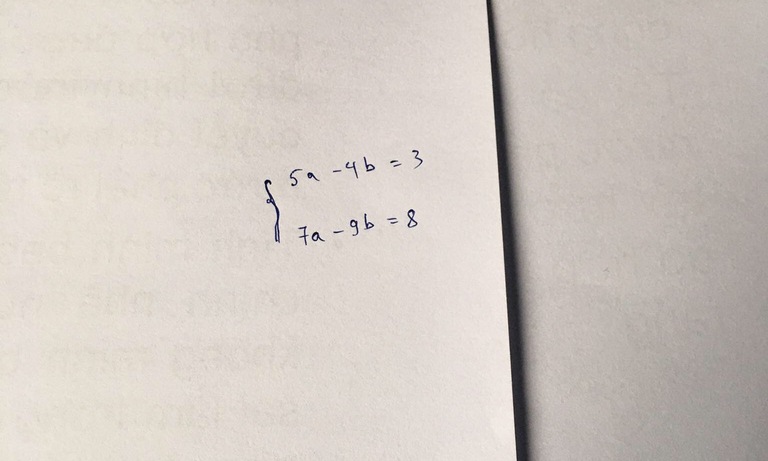 5a - 4b = 3
7a - 9b = 8